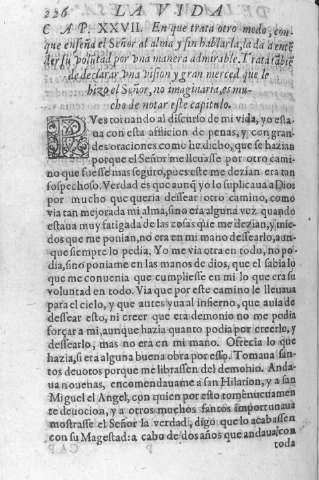 226 LA VIDA
CAP. XXVII. En que trata otro modo, con
que enseña el Señor al alma y sin hablarla, la da a entē
der su volutad por vna manera admirable. Trata tābiē
de declarar vna vision y gran merced que le
hizo el Señor, no imaginaria, es mu-
cho de notar este capitulo.
PVes tornando al discurso de mi vida, yo esta-
ua con esta afliccion de penas, y con gran-
des oraciones como he dicho, que se hazian
porque el Señor me lleuasse por otro cami-
no que fuesse mas seguro, pues este me dezian era tan
sospechoso. Verdad es que aunq̃ yo lo suplicaua a Dios
por mucho que queria dessear otro camino, como
via tan mejorada mi alma, sino era alguna vez quando
estaua muy fatigada de las cosas que me dezian, y mie-
dos que me ponian, no era en mi mano dessearlo, aun-
que siempre lo pedia. Yo me via otra en todo, no po-
dia, sino poniame en las manos de dios, que el sabia lo
que me conuenia que cumpliesse en mi lo que era su
voluntad en todo. Via que por este camino le lleuaua
para el cielo, y que antes yua al infierno, que auia de
dessear esto, ni creer que era demonio no me podia
forçar a mi, aunque hazia quanto podia por creerlo, y
dessearlo, mas no era en mi mano. Ofrecia lo que
hazia, si era alguna buena obra por esso. Tomaua san-
tos deuotos porque me librassen del demonio. Anda-
ua nouenas, encomendauame a san Hilarion, y a san
Miguel el Angel, con quien por esto tomè nueuamente
deuocion, y a otros muchos santos importunaua
mostrasse el Señor la verdad, digo que lo acabassen
con su Magestad: a cabo de dos años que andaua, con
toda